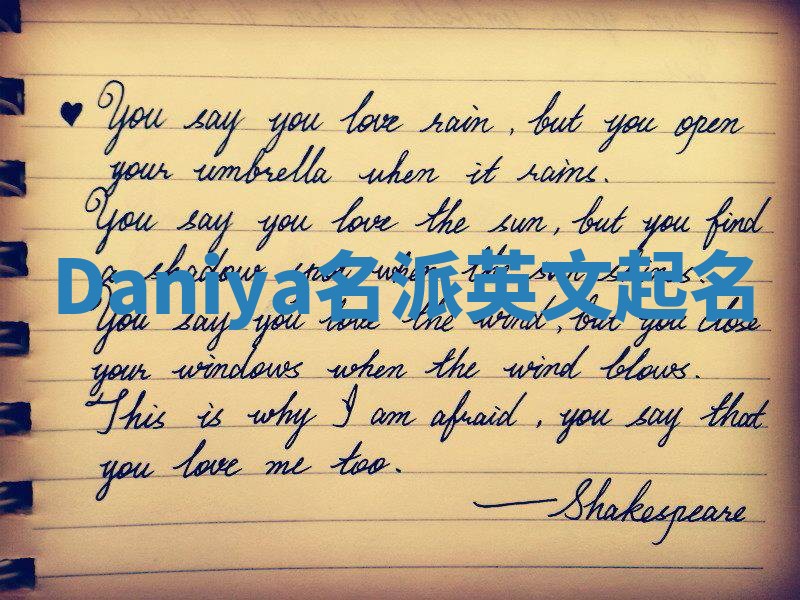 ♥ You say you love rain, but you open
your umbrella when it rains.
You say you love the sun, but you find
a shadow spot when the sun shines.
Daniya名派英文起名
You say you love the wind, but you close
your windows when the wind blows.
This is why I am afraid, you say that
you love me too.
—Shakespeare